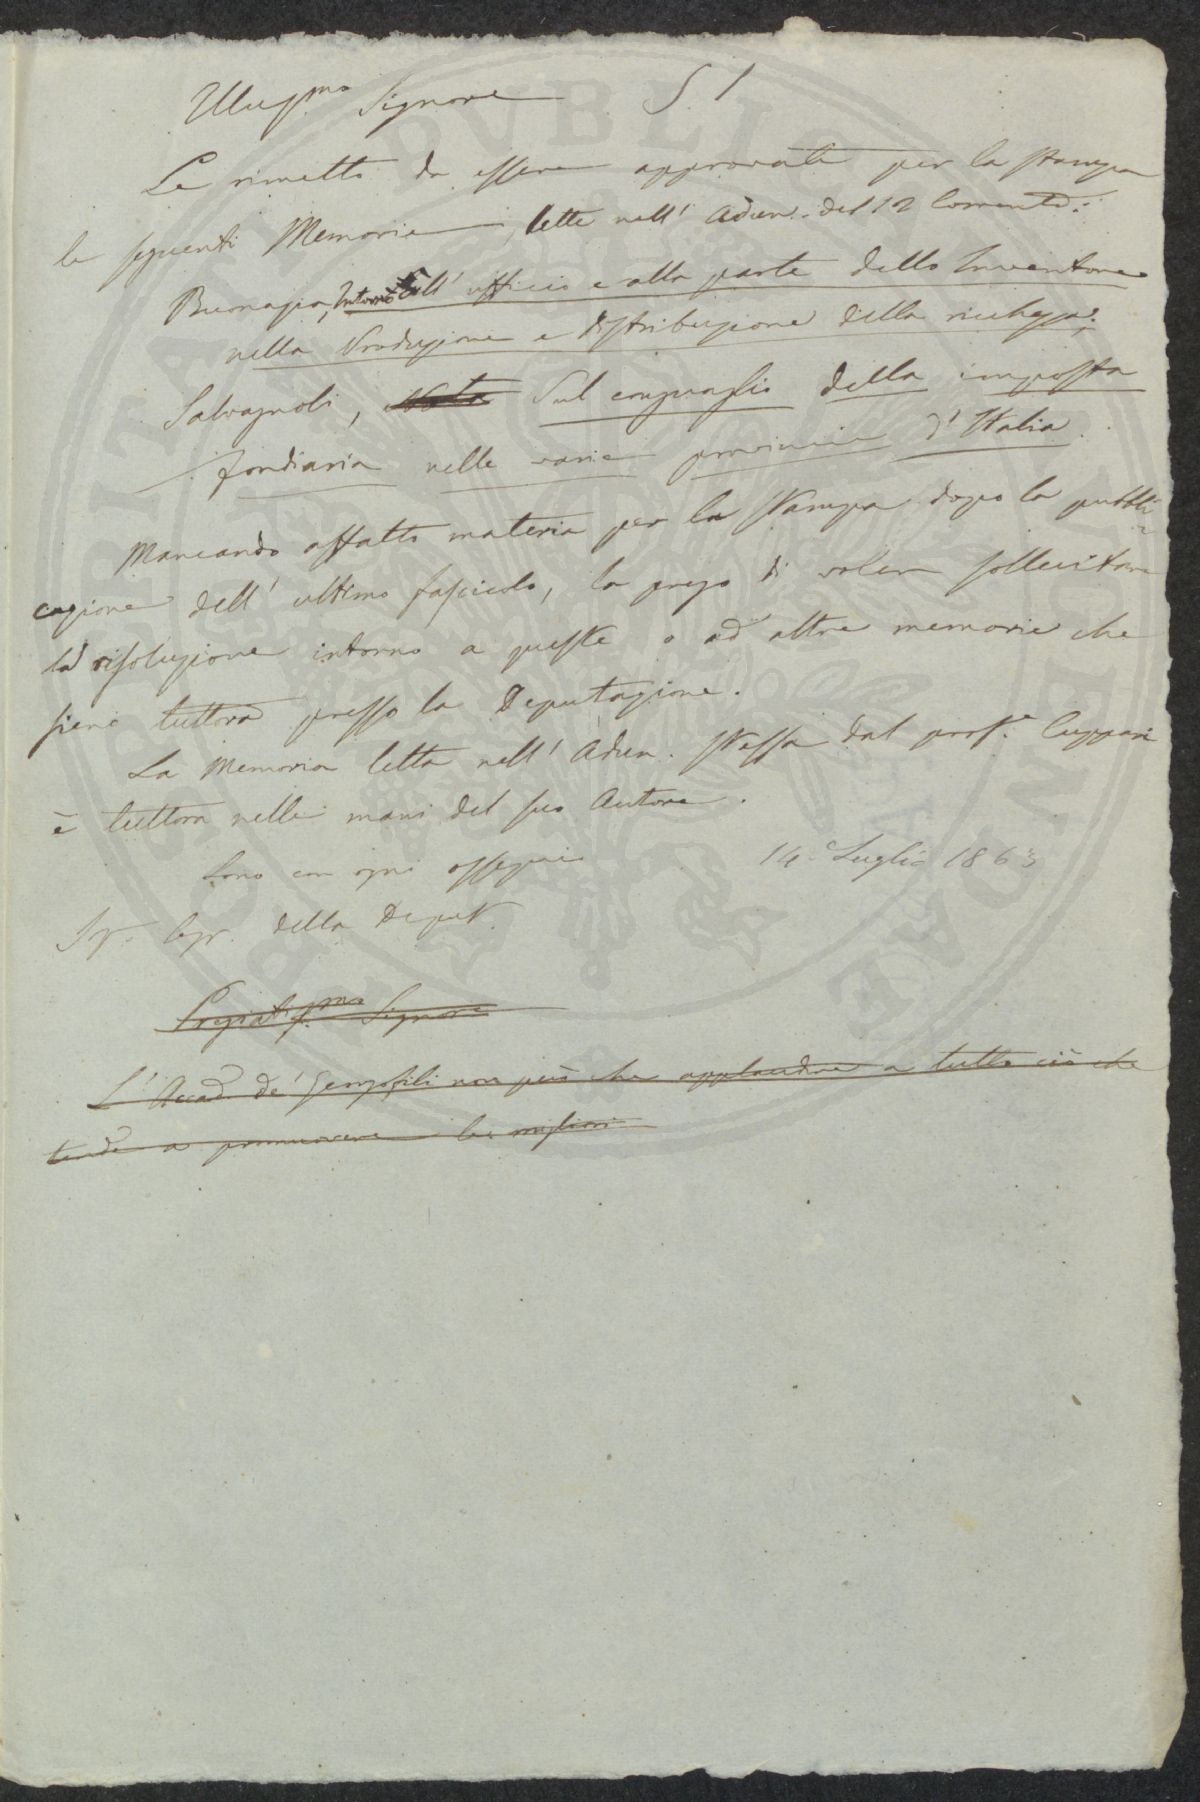 Illus.mo Signore S. I
Le rimetto da essere approvate per la stampa
le seguenti Memorie, lette nell' Adun. del 12 Corrente:
Buonazia, Intorno all' ufficio e alla parte dello Inventore
nella Produzione e distribuzione della ricchezza;
Salvagnoli, Nota Sul conguaglio della imposta
fondiaria nelle varie provincie d'Italia.
Mancando affatto materia per la stampa dopo la pubbli-
cazione dell' ultimo fascicolo, la prego di voler sollecitare
la risoluzione intorno a queste o ad altre memorie che
sieno tuttora presso la Deputazione.
La Memoria letta nell' Adun. stessa dal prof.e Cuppari
è tuttora nelle mani del suo Autore.
Sono con ogni ossequio
14 Luglio 1863
della Deput.
Pregiatiss.mo Signore
L' Accad. de' Georgofili non può che applaudire a tutto ciò che
tende a promuovere le migliori